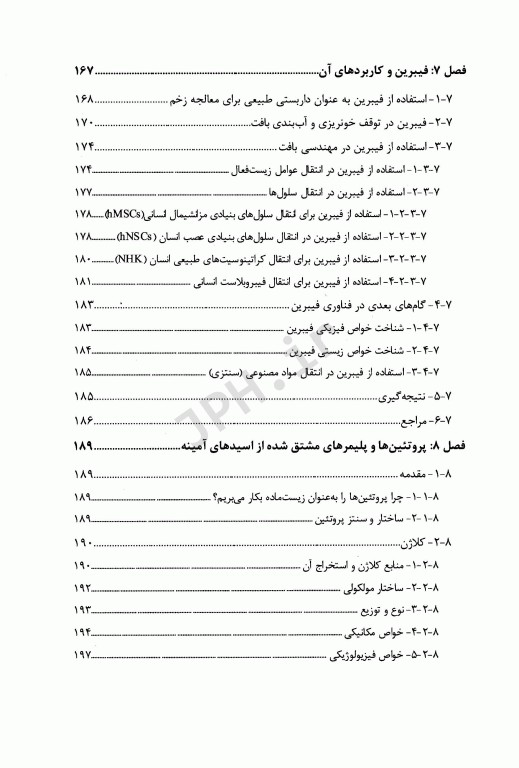 فصل ۷: فیبرین و کاربردهای آن.....۱۶۷
۷-۱- استفاده از فیبرین به عنوان داربستی طبیعی برای معالجه زخم.....۱۶۸
۷-۲- فیبرین در توقف خونریزی و آب‌بندی بافت.....۱۷۰
۷-۳- استفاده از فیبرین در مهندسی بافت.....۱۷۴
۷-۳-۱- استفاده از فیبرین در انتقال عوامل زیست‌فعال.....۱۷۴
۷-۳-۲- استفاده از فیبرین در انتقال سلول‌ها.....۱۷۷
۷-۳-۲-۱- استفاده از فیبرین برای انتقال سلول‌های بنیادی مزانشیمال انسانی(hMSCs).....۱۷۸
۷-۳-۲-۲- استفاده از فیبرین در انتقال سلول‌های بنیادی عصب انسان (hNSCs).....۱۷۸
۷-۳-۲-۳- استفاده از فیبرین برای انتقال کراتینوسیت‌های طبیعی انسان (NHK).....۱۸۰
۷-۳-۲-۴- استفاده از فیبرین برای انتقال فیبروبلاست انسانی.....۱۸۱
۷-۴- گام‌های بعدی در فناوری فیبرین.....۱۸۳
۷-۴-۱- شناخت خواص فیزیکی فیبرین.....۱۸۳
۷-۴-۲- شناخت خواص زیستی فیبرین.....۱۸۴
۷-۴-۳- استفاده از فیبرین در انتقال مواد مصنوعی (سنتزی).....۱۸۵
۷-۵- نتیجه‌گیری.....۱۸۵
۷-۶- مراجع.....۱۸۶
فصل ۸: پروتئین‌ها و پلیمرهای مشتق شده از اسیدهای آمینه.....۱۸۹
۸-۱- مقدمه.....۱۸۹
۸-۱-۱- چرا پروتئین‌ها را به‌عنوان زیست‌ماده بکار می‌بریم؟.....۱۸۹
۸-۱-۲- ساختار و سنتز پروتئین.....۱۸۹
۸-۲- کلاژن.....۱۹۰
۸-۲-۱- منابع کلاژن و استخراج آن.....۱۹۰
۸-۲-۲- ساختار مولکولی.....۱۹۲
۸-۲-۳- نوع و توزیع.....۱۹۳
۸-۲-۴- خواص مکانیکی.....۱۹۴
۸-۲-۵- خواص فیزیولوژیکی.....۱۹۷
JPH.ir